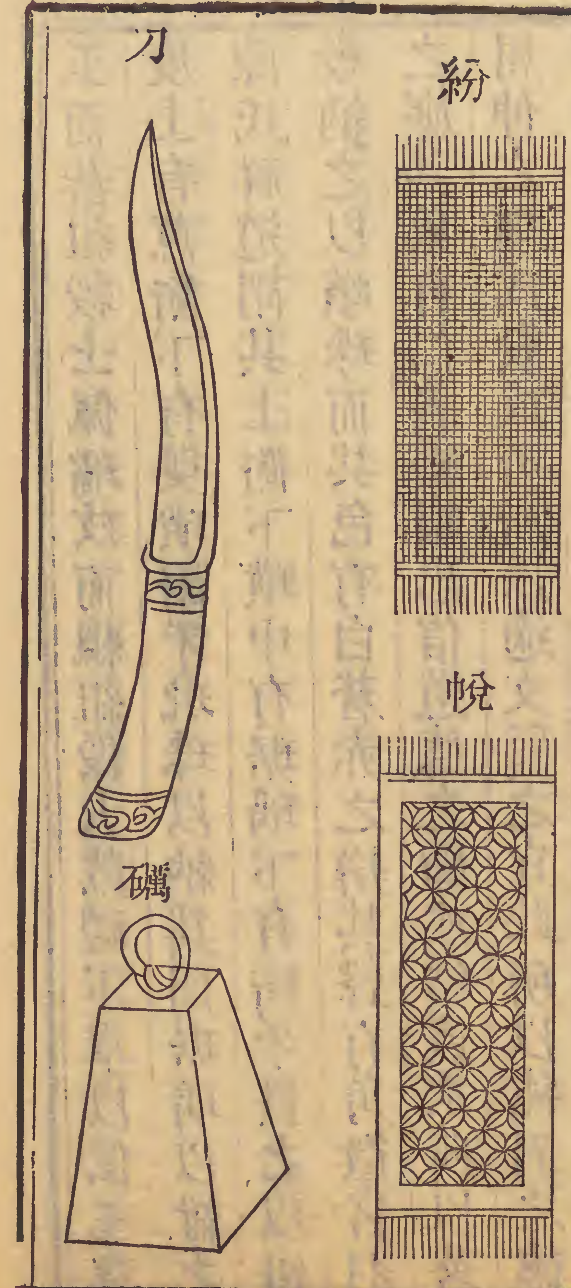 紛
帨
刀
礪